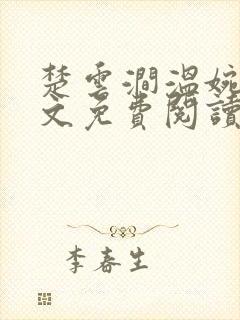 楚雲澗溫婉
文免費閱讀
李春生